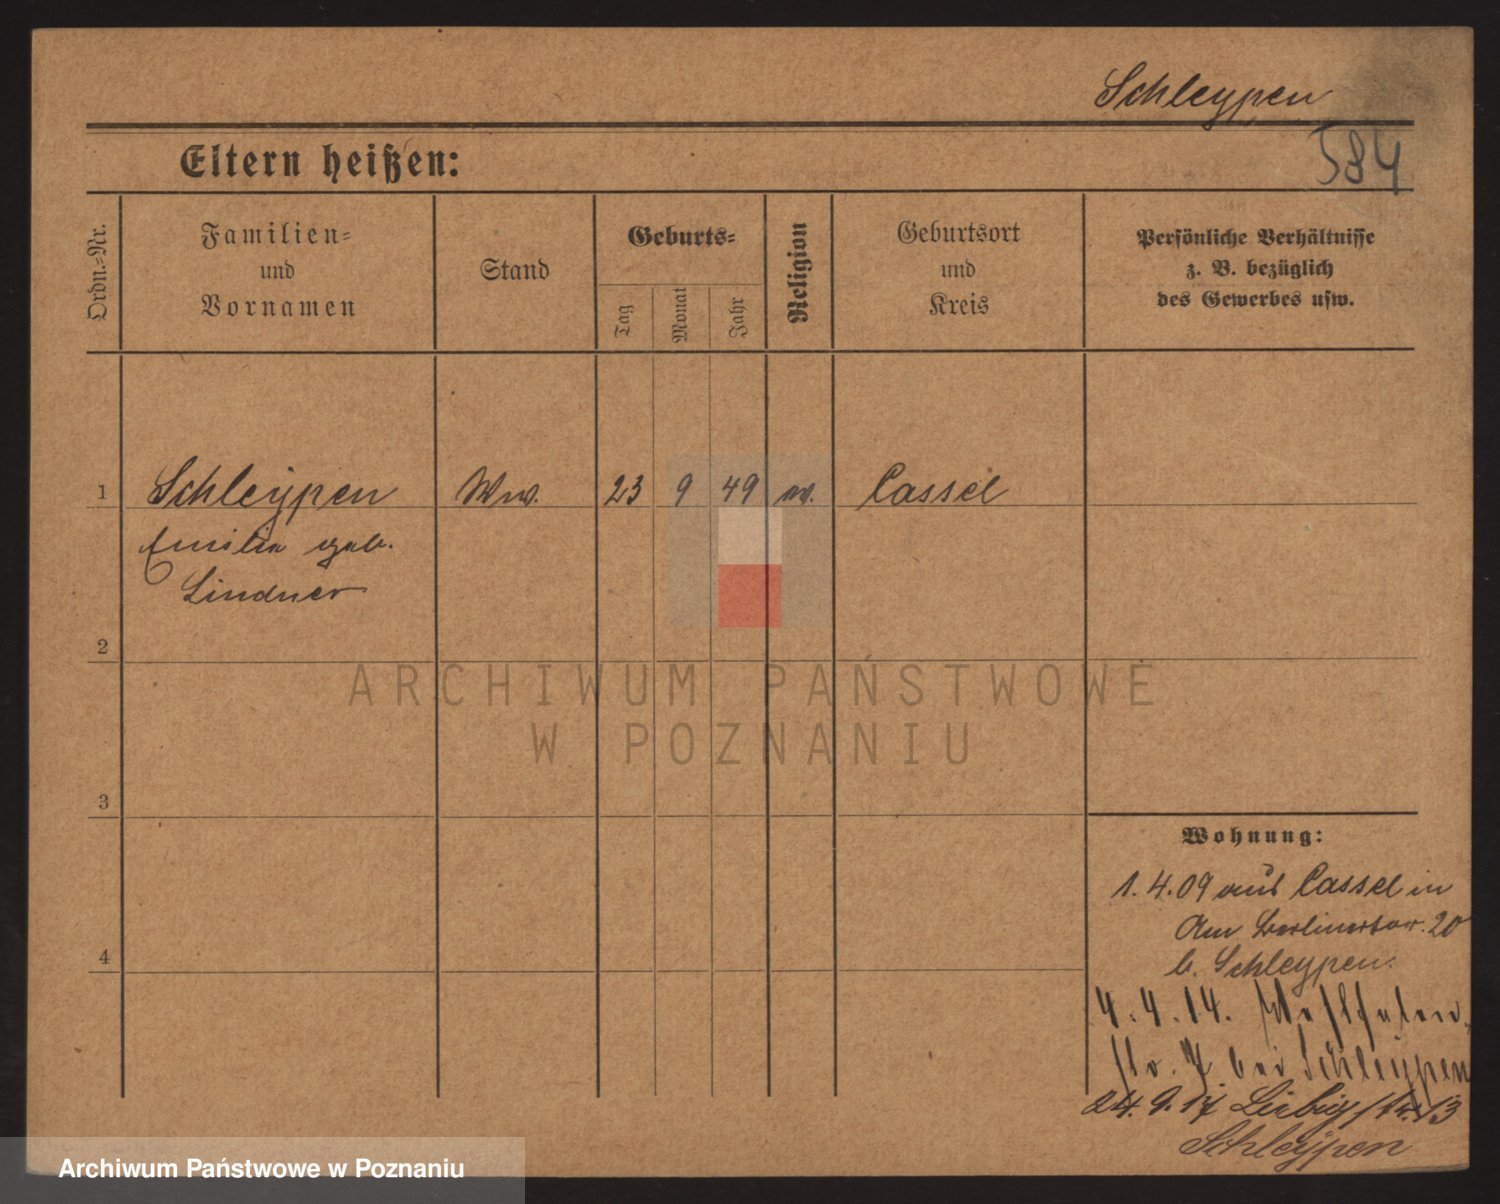 Schleypen
584
Eltern heißen:
Ordn.-Nr.
Familien-
und
Vornamen
Stand
Geburts-
Tag
Monat
Jahr
Religion
Geburtsort
und
Kreis
Persönliche Verhältnisse
z. B. bezüglich
des Gewerbes usw.
1 Schleypen Ww. 23 9 49 Cassel
Emilie geb.
Lindner
2
3
4
Wohnung:
1. 4. 09 aus Cassel in
Am Berlinertor. 20
b. Schleypen.
4. 4. 14. Westfalen
str. 7 bei Schleypen
24. 9. 17 Liebigstr. 13
Schleypen
ARCHIWUM PAŃSTWOWE
W POZNANIU
Archiwum Państwowe w Poznaniu